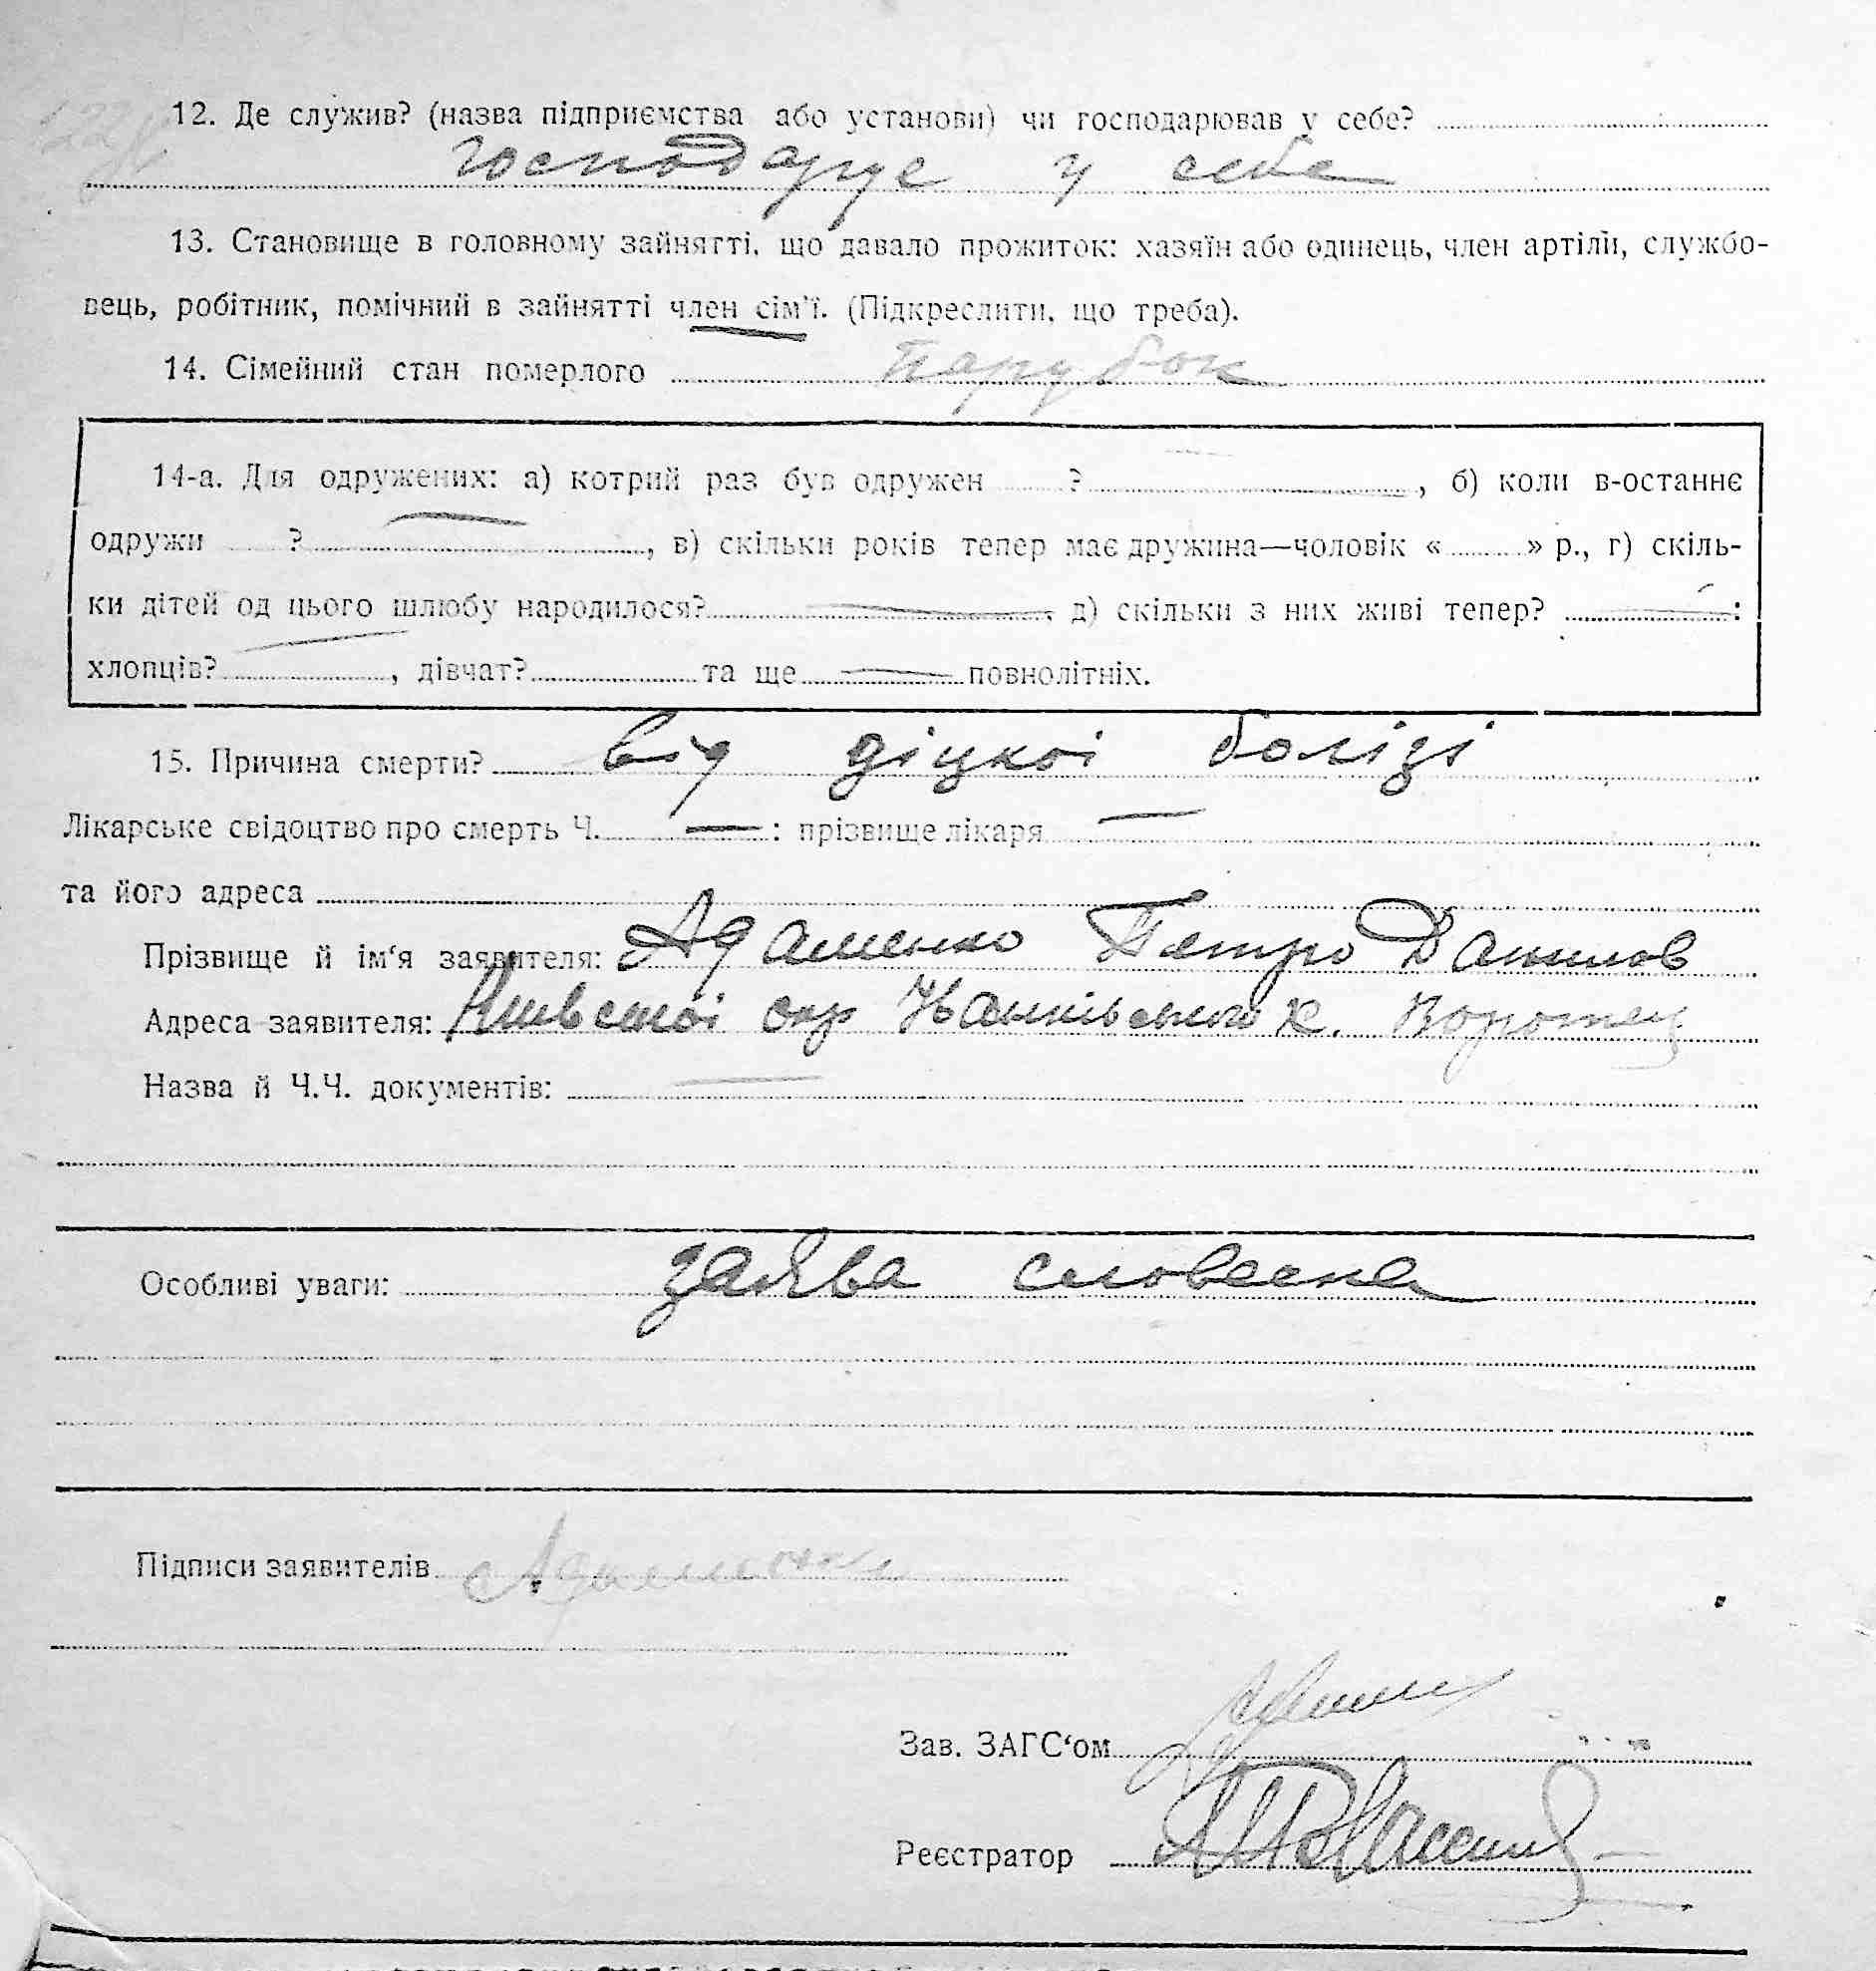 12. Де служив? (назва підприємства або установи) чи господарював у себе?
господарує у себе
13. Становище в головному зайнятті, що давало прожиток: хазяїн або одинець, член артілі, службо-
вець, робітник, помічний в зайнятті член сім'ї. (Підкреслити, що треба).
14. Сімейний стан померлого парубок
14-а. Для одружених: а) котрий раз був одружен ?, б) коли в-останнє
одружи ?, в) скільки років тепер має дружина—чоловік « » р., г) скіль-
ки дітей од цього шлюбу народилося?, д) скільки з них живі тепер? :
хлопців?, дівчат? та ще — повнолітніх.
15. Причина смерти? від діцкоі болізі
Лікарське свідоцтво про смерть Ч. — : прізвище лікаря —
та його адреса
Прізвище й ім'я заявителя: Адаменко Петро Данилов
Адреса заявителя: окр
Назва й Ч.Ч. документів: —
Особливі уваги: заява словесна
Підписи заявителів Адаменко
Зав. ЗАГС'ом
Реєстратор